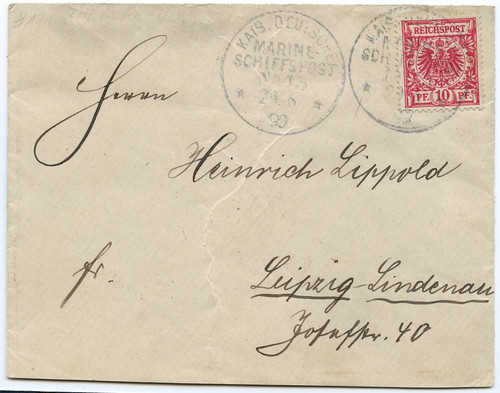 KAIS. DEUTSCHE
MARINE-
SCHIFFSPOST
24 8
99
REICHSPOST
PF. 10 PF.
Herrn
Heinrich Lippold
fr.
Leipzig-Lindenau
Josefstr. 40